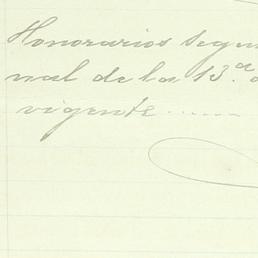 Honorarios segun
nal de la 13.a
vigente